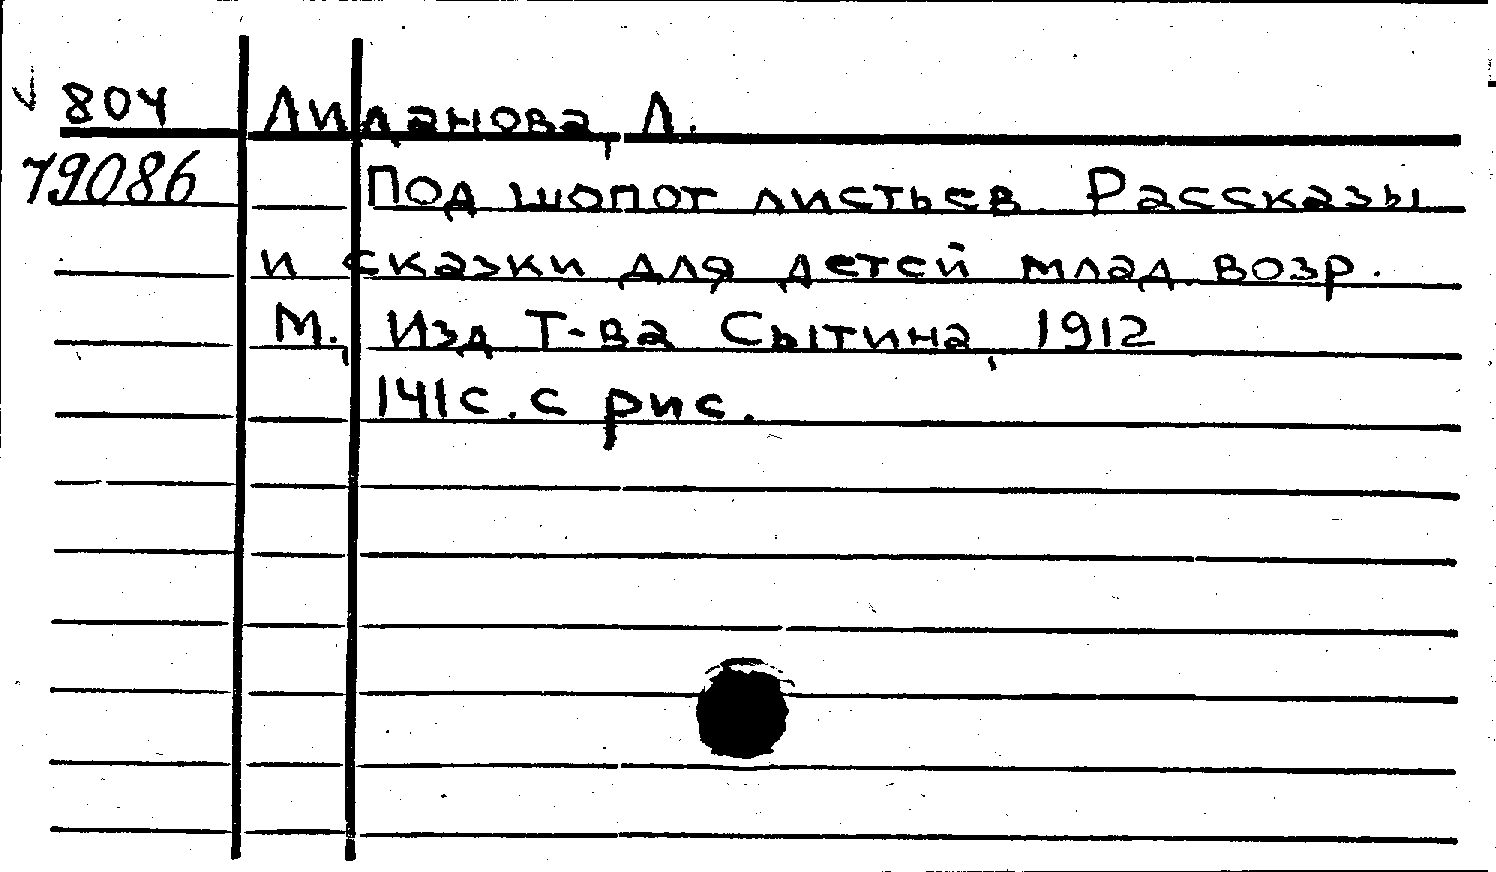 804 Лиданова, Л.
79086 Под шопот листьев. Рассказы
и сказки для детей млад. возр.
М., Изд Т-ва Сытина, 1912
141с. с рис.